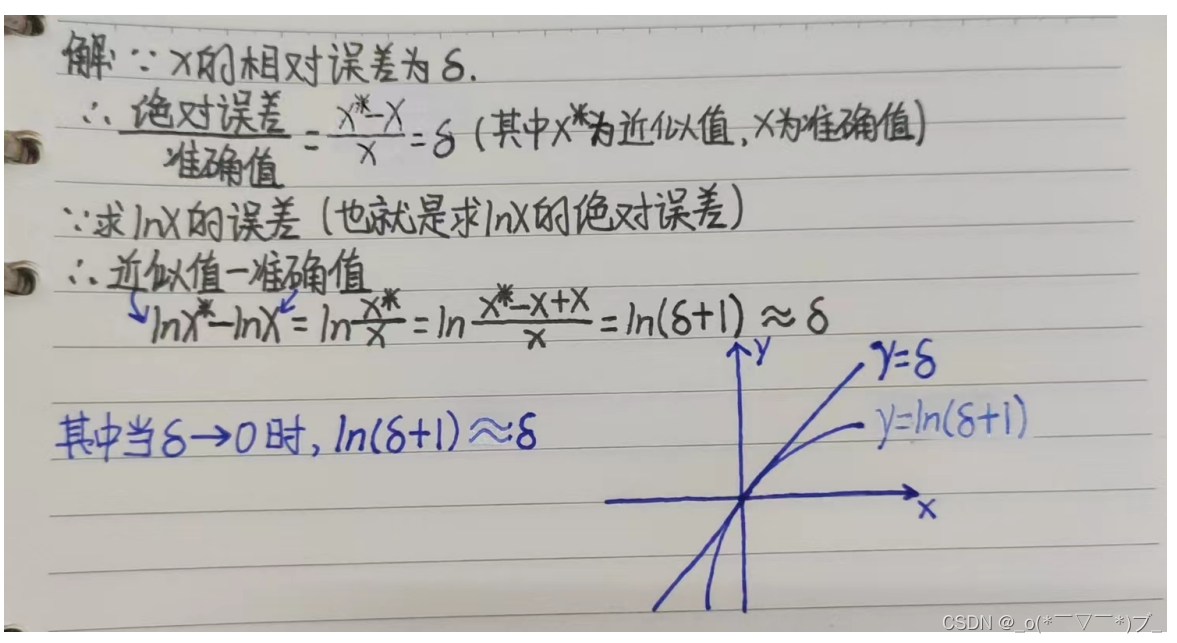 解: ∵ x的相对误差为 δ.
∴ 绝对误差/准确值 = (x*-x)/x = δ (其中x*为近似值, x为准确值)
∵求lnx的误差 (也就是求lnx的绝对误差)
∴ 近似值-准确值
lnx*-lnx = ln x*/x = ln (x*-x+x)/x = ln(δ+1) ≈ δ
y
y=δ
y=ln(δ+1)
其中当δ→0时, ln(δ+1) ≈ δ
x
CSDN @_o(*￣▽￣*)ブ_